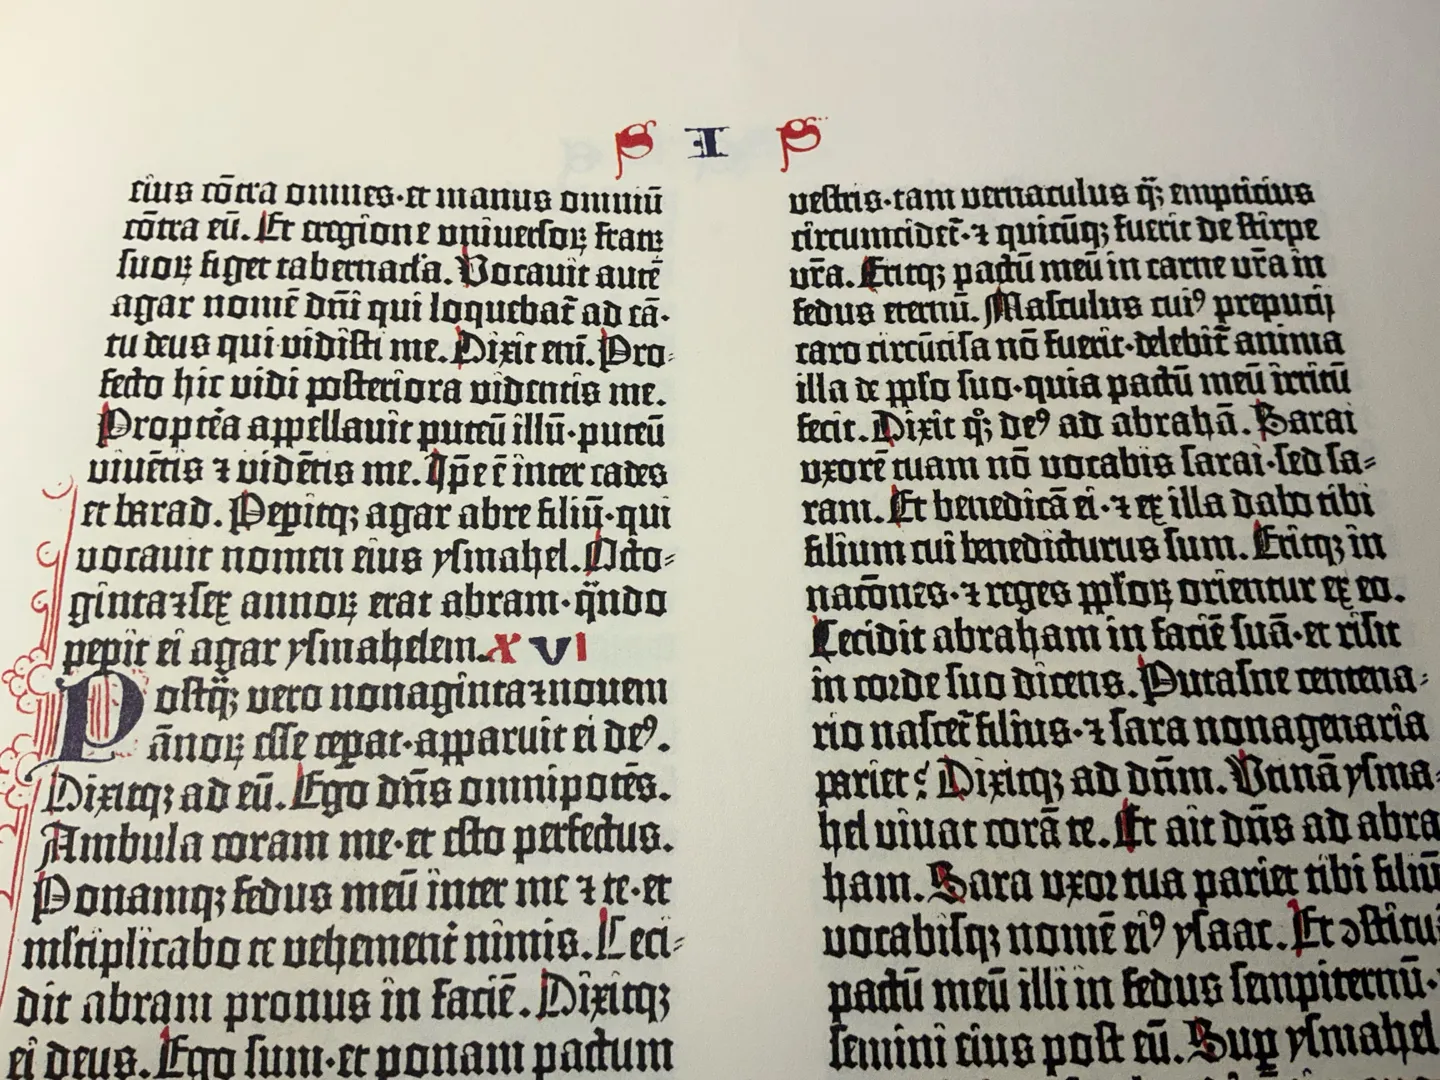 S I S
eius cōtra omnes·et manus omniū
cōtra eū. Et eregione universoꝝ fratꝝ
suoꝝ figet tabernacla. Vocavit autē
agar nomē dn̄i qui loquebat̄ ad eā·
tu deus qui vidisti me. Dixit eni̅. Pro-
fecto hic vidi posteriora videntis me.
Propt̄ea appellavit puteū illū·puteū
viuētis ⁊ vidētis me. Ip̄e ē inter cades
et barad. Pepitqꝫ agar abre filiū·qui
vocauit nomen eius ysmahel. Octo-
ginta⁊sex annoꝝ erat abram·qn̄do
pepit ei agar ysmahelem. XVI
Postqꝫ vero nonaginta⁊nouem
ānoꝝ esse ceperat·apparuit ei deꝰ.
Dixitqꝫ ad eū. Ego dn̄s omnipotēs.
Ambula coram me·et esto perfectus.
Ponamqꝫ fedus meū inter me ⁊ te·et
mltiplicabo te vehement̄ nimis. Ceci-
dit abram pronus in faciē. Dixitqꝫ
ei deus. Ego sum·et ponam pactum
vestris·tam vernaculus qꝫ empticius
circumcidet̄·⁊ quicūqꝫ fuerit de stirpe
vr̄a. Eritqꝫ pactū meū in carne vr̄a in
fedus eternū. Masculus cuiꝰ prepucij
caro circūcisa nō fuerit·delebit̄ anima
illa de pp̄lo suo·quia pactū meū irritū
fecit. Dixit qꝫ deꝰ ad abrahā. Sarai
vxorē tuam nō vocabis sarai·sed sa-
ram. Et benedicā ei·⁊ ex illa dabo tibi
filium cui benedicturus sum. Eritqꝫ in
natōnes·⁊ reges pp̄loꝝ orientur ex eo.
Cecidit abraham in faciē suā·et risit
in corde suo dicens. Putasne centena-
rio nascet̄ filius·⁊ sara nonagenaria
pariet? Dixitqꝫ ad dn̄m. Vtinā ysma-
hel viuat corā te. Et ait dn̄s ad abra
ham. Sara vxor tua pariet tibi filiū
vocabisqꝫ nomē eiꝰ ysaac. Et ↄstitu
pactū meū illi in fedus sempiternū·
semini eius post eū. Suꝑ ysmahel